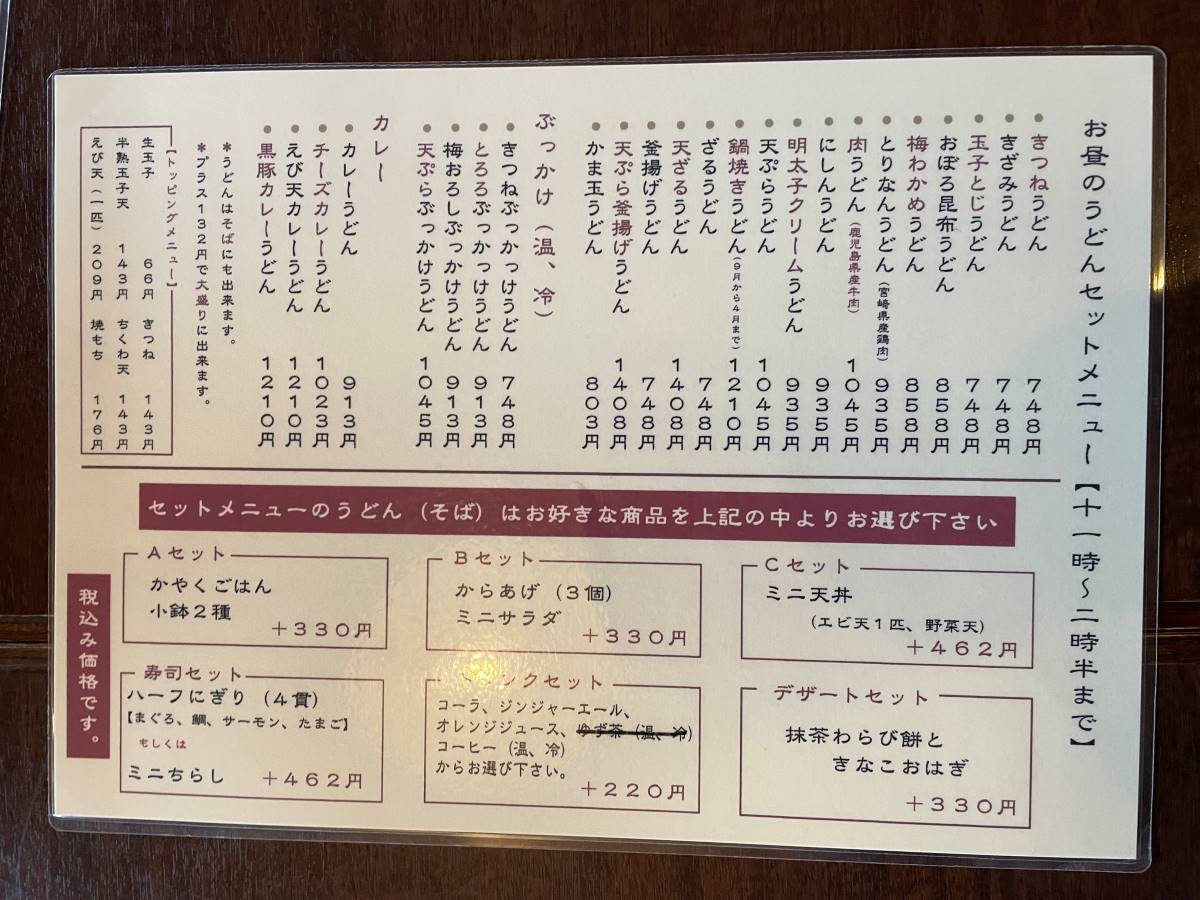 お昼のうどんセットメニュー【十一時～二時半まで】
●きつねうどん 748円
●きざみうどん 748円
●玉子とじうどん 748円
●おぼろ昆布うどん 858円
●梅わかめうどん 858円
●とりなんうどん(宮崎県産鶏肉) 935円
●肉うどん(鹿児島県産牛肉) 1045円
●にしんうどん 935円
●明太子クリームうどん 935円
●天ぷらうどん 1045円
●鍋焼きうどん(9月から4月まで) 1210円
●ざるうどん 748円
●天ざるうどん 1408円
●釜揚げうどん 748円
●天ぷら釜揚げうどん 1408円
●かま玉うどん 803円
ぶっかけ(温、冷)
●きつねぶっかっけうどん 748円
●とろろぶっかっけうどん 913円
●梅おろしぶっかけうどん 913円
●天ぷらぶっかけうどん 1045円
カレー
●カレーうどん 913円
●チーズカレーうどん 1023円
●えび天カレーうどん 1210円
●黒豚カレーうどん 1210円
＊うどんはそばにも出来ます。
＊プラス132円で大盛りに出来ます。
【トッピングメニュー】
生玉子 66円 きつね 143円
半熟玉子天 143円 ちくわ天 143円
えび天(一匹) 209円 焼もち 176円
セットメニューのうどん(そば)はお好きな商品を上記の中よりお選び下さい
Aセット
かやくごはん
小鉢2種
+330円
Bセット
からあげ(3個)
ミニサラダ
+330円
Cセット
ミニ天丼
(エビ天1匹、野菜天)
+462円
寿司セット
ハーフにぎり(4貫)
【まぐろ、鯛、サーモン、たまご】
もしくは
ミニちらし +462円
ンクセット
コーラ、ジンジャーエール、
オレンジジュース、ゆず茶(温、冷)
コーヒー(温、冷)
からお選び下さい。
+220円
デザートセット
抹茶わらび餅と
きなこおはぎ
+330円
税込み価格です。